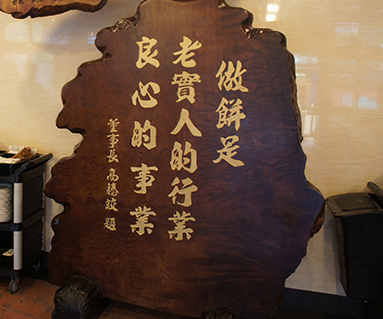 做餅是
老實人的行業
良心的事業
董事長 高勝 題